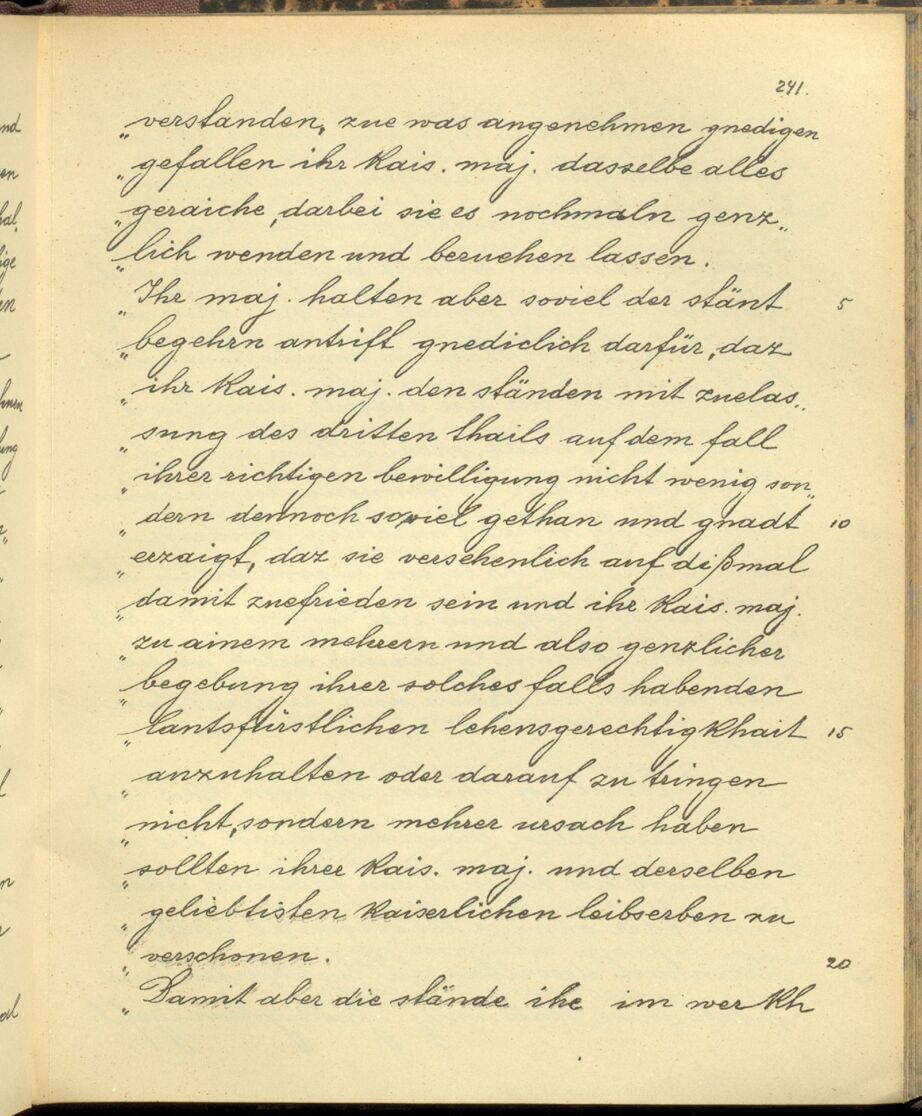 241.
„verstanden, zue was angenehmen gnedigen
„gefallen ihr Kais. maj. dasselbe alles
„geraiche, darbei sie es nochmaln genz„
„lich wenden und beruehen lassen.
„Ihr maj. halten aber soviel der stänt 5
„begehrn antrift gnediclich darfür, daz
„ihr Kais. maj. den ständen mit zuelas„
„sung des dritten thails auf dem fall
„ihrer richtigen bewilligung nicht wenig son„
„dern dennoch soviel gethan und gnadt 10
„erzaigt, daz sie versehenlich auf dißmal
„damit zuefrieden sein und ihr Kais. maj.
„zu ainem mehrern und also genzlicher
„begebung ihrer solches falls habenden
„lantsfürstlichen lehensgerechtigkhait 15
„anzuhalten oder darauf zu tringen
„nicht, sondern mehrer ursach haben
„sollten ihrer Kais. maj. und derselben
„geliebtisten Kaiserlichen leibserben zu
„verschonen. 20
„Damit aber die stände ihr im werkh